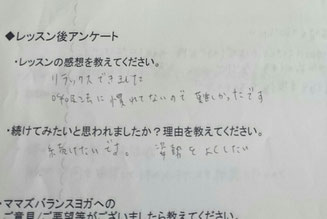 ◆レッスン後アンケート
・レッスンの感想を教えてください。
リラックスできました
呼吸法に慣れてないので難しかったです
・続けてみたいと思われましたか？理由を教えてください。
続けたいです。 姿勢をよくしたい
・ママズバランスヨガへの
ご意見/ご要望等がございましたら教えてください。